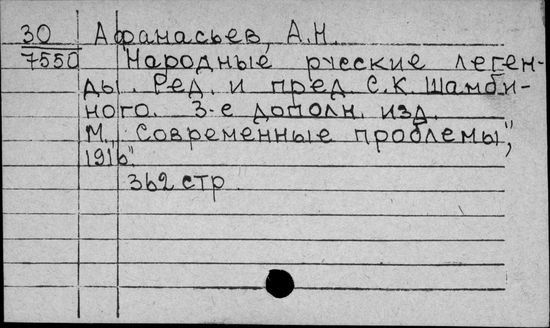 30 Афанасьев, А.Н.
7550 Народные русские леген-
ды. Ред. и пред. С.К. Шамби-
ного. 3-е дополн. изд.
М., "Современные проблемы",
1916.
362 стр.